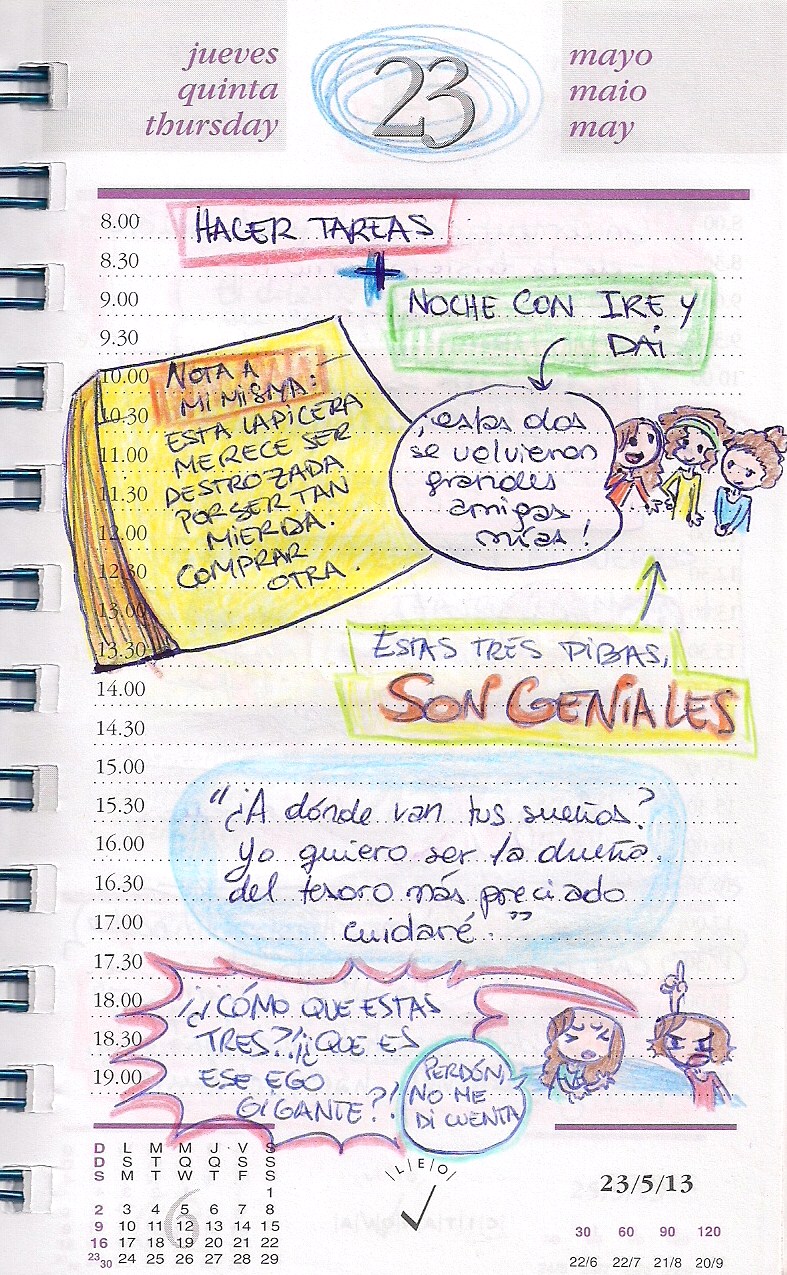 jueves
quinta
thursday
23
mayo
maio
may
8.00
HACER TAREAS
8.30
+
9.00
NOCHE CON IRE Y
DAI
9.30
10.00
NOTA A
MI MISMA:
10.30
ESTA LAPICERA
MERECE SER
11.00
DESTROZADA
11.30
POR SER TAN
12.00
MIERDA.
COMPRAR
12.30
OTRA.
¡estas dos
se volvieron
grandes
amigas
mías!
13.00
13.30
ESTAS TRES PIBAS,
14.00
SON GENIALES
14.30
15.00
15.30
"¿A dónde van tus sueños?
16.00
Yo quiero ser la dueña.
16.30
del tesoro más preciado
17.00
cuidaré."
17.30
18.00
¡¿CÓMO QUE ESTAS
18.30
TRES?!¡¿QUE ES
19.00
ESE EGO
GIGANTE?!
PERDÓN,
NO ME
DI CUENTA
|L|E|O|
6
D L M M J V S
D S T Q Q S S
S M T W T F S
1
2 3 4 5 6 7 8
9 10 11 12 13 14 15
16 17 18 19 20 21 22
23 30 24 25 26 27 28 29
23/5/13
30 60 90 120
22/6 22/7 21/8 20/9